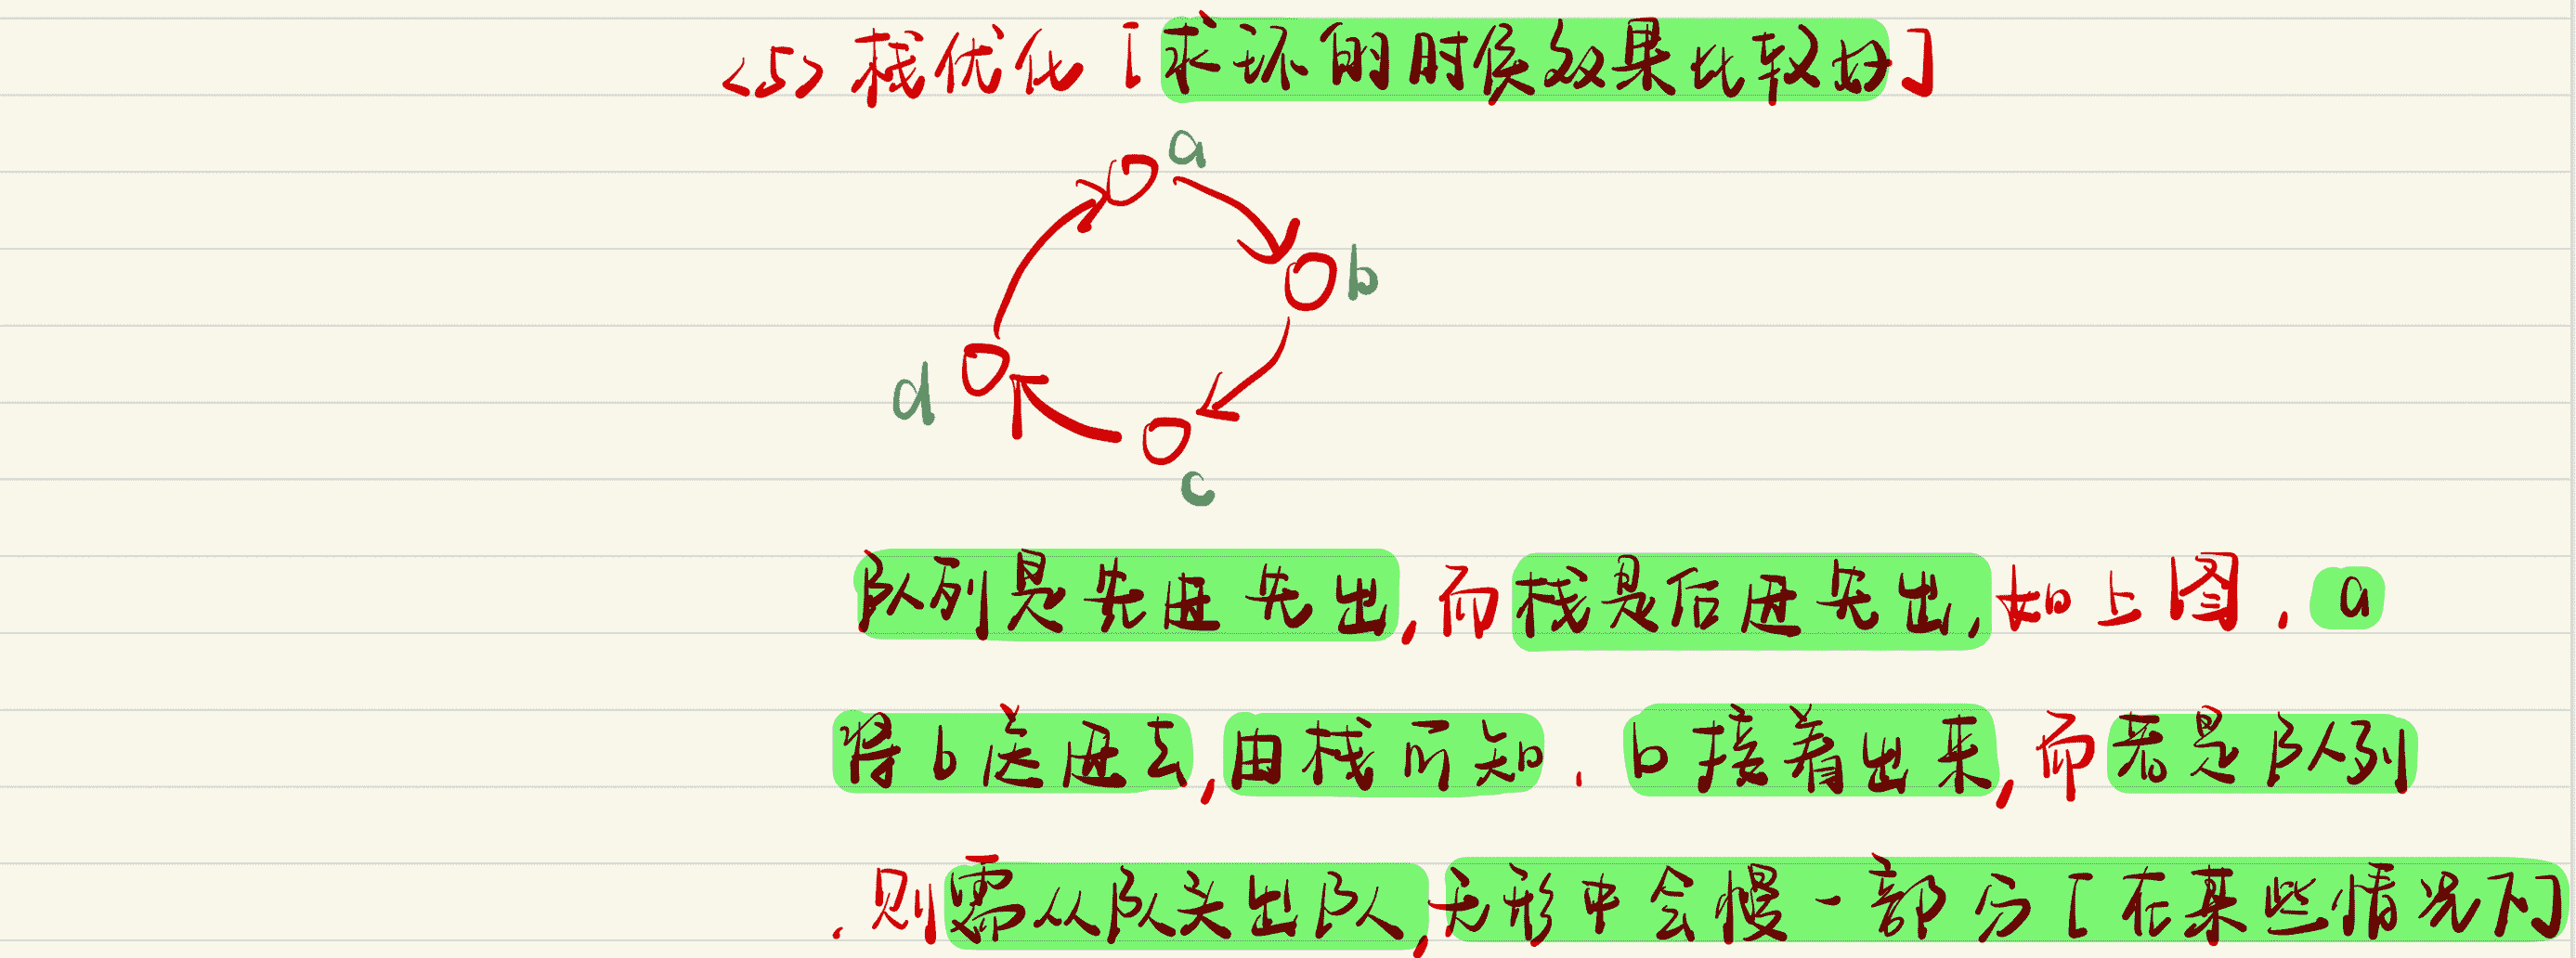 <5>栈优化[求环的时候效果比较好]
a
b
d
c
队列是先进先出,而栈是后进先出,如上图,a
将b送进去,由栈可知,b接着出来,而若是队列
,则需从队头出队,无形中会慢一部分[在某些情况下]